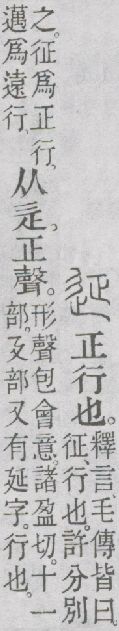 正行也。釋言、毛傳皆曰
征、行也。許分別
之。征爲正行、
邁爲遠行、
从辵。正聲。形聲包會意。諸盈切。十一
部。廴部又有延字。行也。